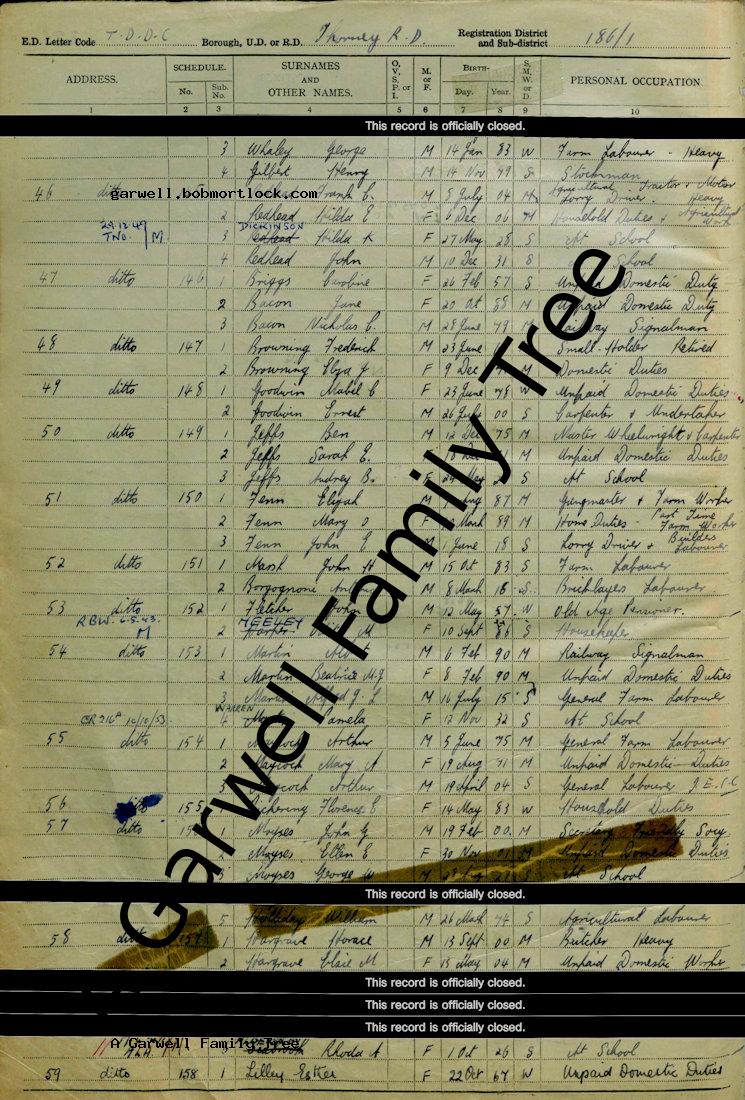 E.D. Letter Code T.D.D.C Borough, U.D. or R.D. Thorney R.D. Registration District and Sub-district 186/1
ADDRESS. SCHEDULE. No. Sub. No. SURNAMES AND OTHER NAMES. O, V, S, P. or I. M. or F. BIRTH- Day. Year. S, M, W, or D. PERSONAL OCCUPATION.
1 2 3 4 5 6 7 8 9 10
This record is officially closed.
3 Whaley George M 14 Jan 83 W Farm Labourer - Heavy
4 Gilbert Henry M 14 Nov 79 S Stockman
46 ditto Frank C. M 5 July 04 M Agricultural Tractor & Motor Lorry Driver. Heavy
garwell.bobmortlock.com
2 Redhead Hilda E F 6 Dec 06 M Household Duties & Agricultural Work
29.12.49 TNO. M DICKINSON
3 Redhead Hilda K F 27 May 28 S At School
4 Redhead John M 10 Dec 31 S School
47 ditto 146 1 Briggs Caroline F 26 Feb 57 S Unpaid Domestic Duty
2 Bacon Jane F 20 Oct 88 M Unpaid Domestic Duty
3 Bacon Nicholas C. M 28 June 79 M Railway Signalman
48 ditto 147 1 Browning Frederick M 23 June Small-Holder Retired
2 Browning Elza J F 9 Dec M Domestic Duties
49 ditto 148 1 Goodwin Mabel C F 23 June 78 W Unpaid Domestic Duties
2 Goodwin Ernest M 26 June 00 S Carpenter & Undertaker
50 ditto 149 1 Jeffs Ben M 12 Dec 75 M Master Wheelwright & Carpenter
2 Jeffs Sarah E. 18 Dec M Unpaid Domestic Duties
3 Jeffs Audrey B. F 24 May S At School
51 ditto 150 1 Fenn Elijah M Aug 87 M Gangmaster & Farm Worker
2 Fenn Mary F March 89 M Home Duties - Part Time Farm Worker
3 Fenn John E M 1 June 18 S Lorry Driver & Builders Labourer
52 ditto 151 1 Marsh John H M 15 Oct 83 S Farm Labourer
2 Borgognoni M 8 March 16 S Bricklayers Labourer
53 ditto 152 1 Fletcher John M 12 May 57 W Old Age Pensioner.
RBW. 6.5.43. M HEELEY
2 Harper M F 10 Sept 86 S Housekeeper
54 ditto 153 1 Martin M 6 Feb 90 M Railway Signalman
2 Martin Beatrice M.J F 8 Feb 90 M Unpaid Domestic Duties
3 Martin Alfred J. L M 16 July 15 S General Farm Labourer
CR 216A 14/10/53 WARREN
4 Pamela F 12 Nov 32 S At School
55 ditto 154 1 Arthur M 5 June 75 M General Farm Labourer
2 Haycock Mary A F 19 Aug 71 M Unpaid Domestic Duties
3 Arthur M 19 April 04 S General Labourer J.E.C.C
56 ditto 155 Pickering Florence E F 14 May 83 W Household Duties
57 ditto 1 Moyses John G M 19 Feb 00 M Secretary Friendly Socy.
2 Moyses Ellen E F 30 Nov 01 M Unpaid Domestic Duties
Moyses George W M S At School
This record is officially closed.
5 Holliday William M 26 March 74 S Agricultural Labourer
58 ditto 157 1 Hargrave Horace M 13 Sept 00 M Butcher Heavy
2 Hargrave M F 13 May 04 M Unpaid Domestic Worker
This record is officially closed.
This record is officially closed.
This record is officially closed.
A Garwell Family Tree
3 Rhoda A F 1 Oct 26 S At School
59 ditto 158 1 Lilley Esther F 22 Oct 67 W Unpaid Domestic Duties
Garwell Family Tree